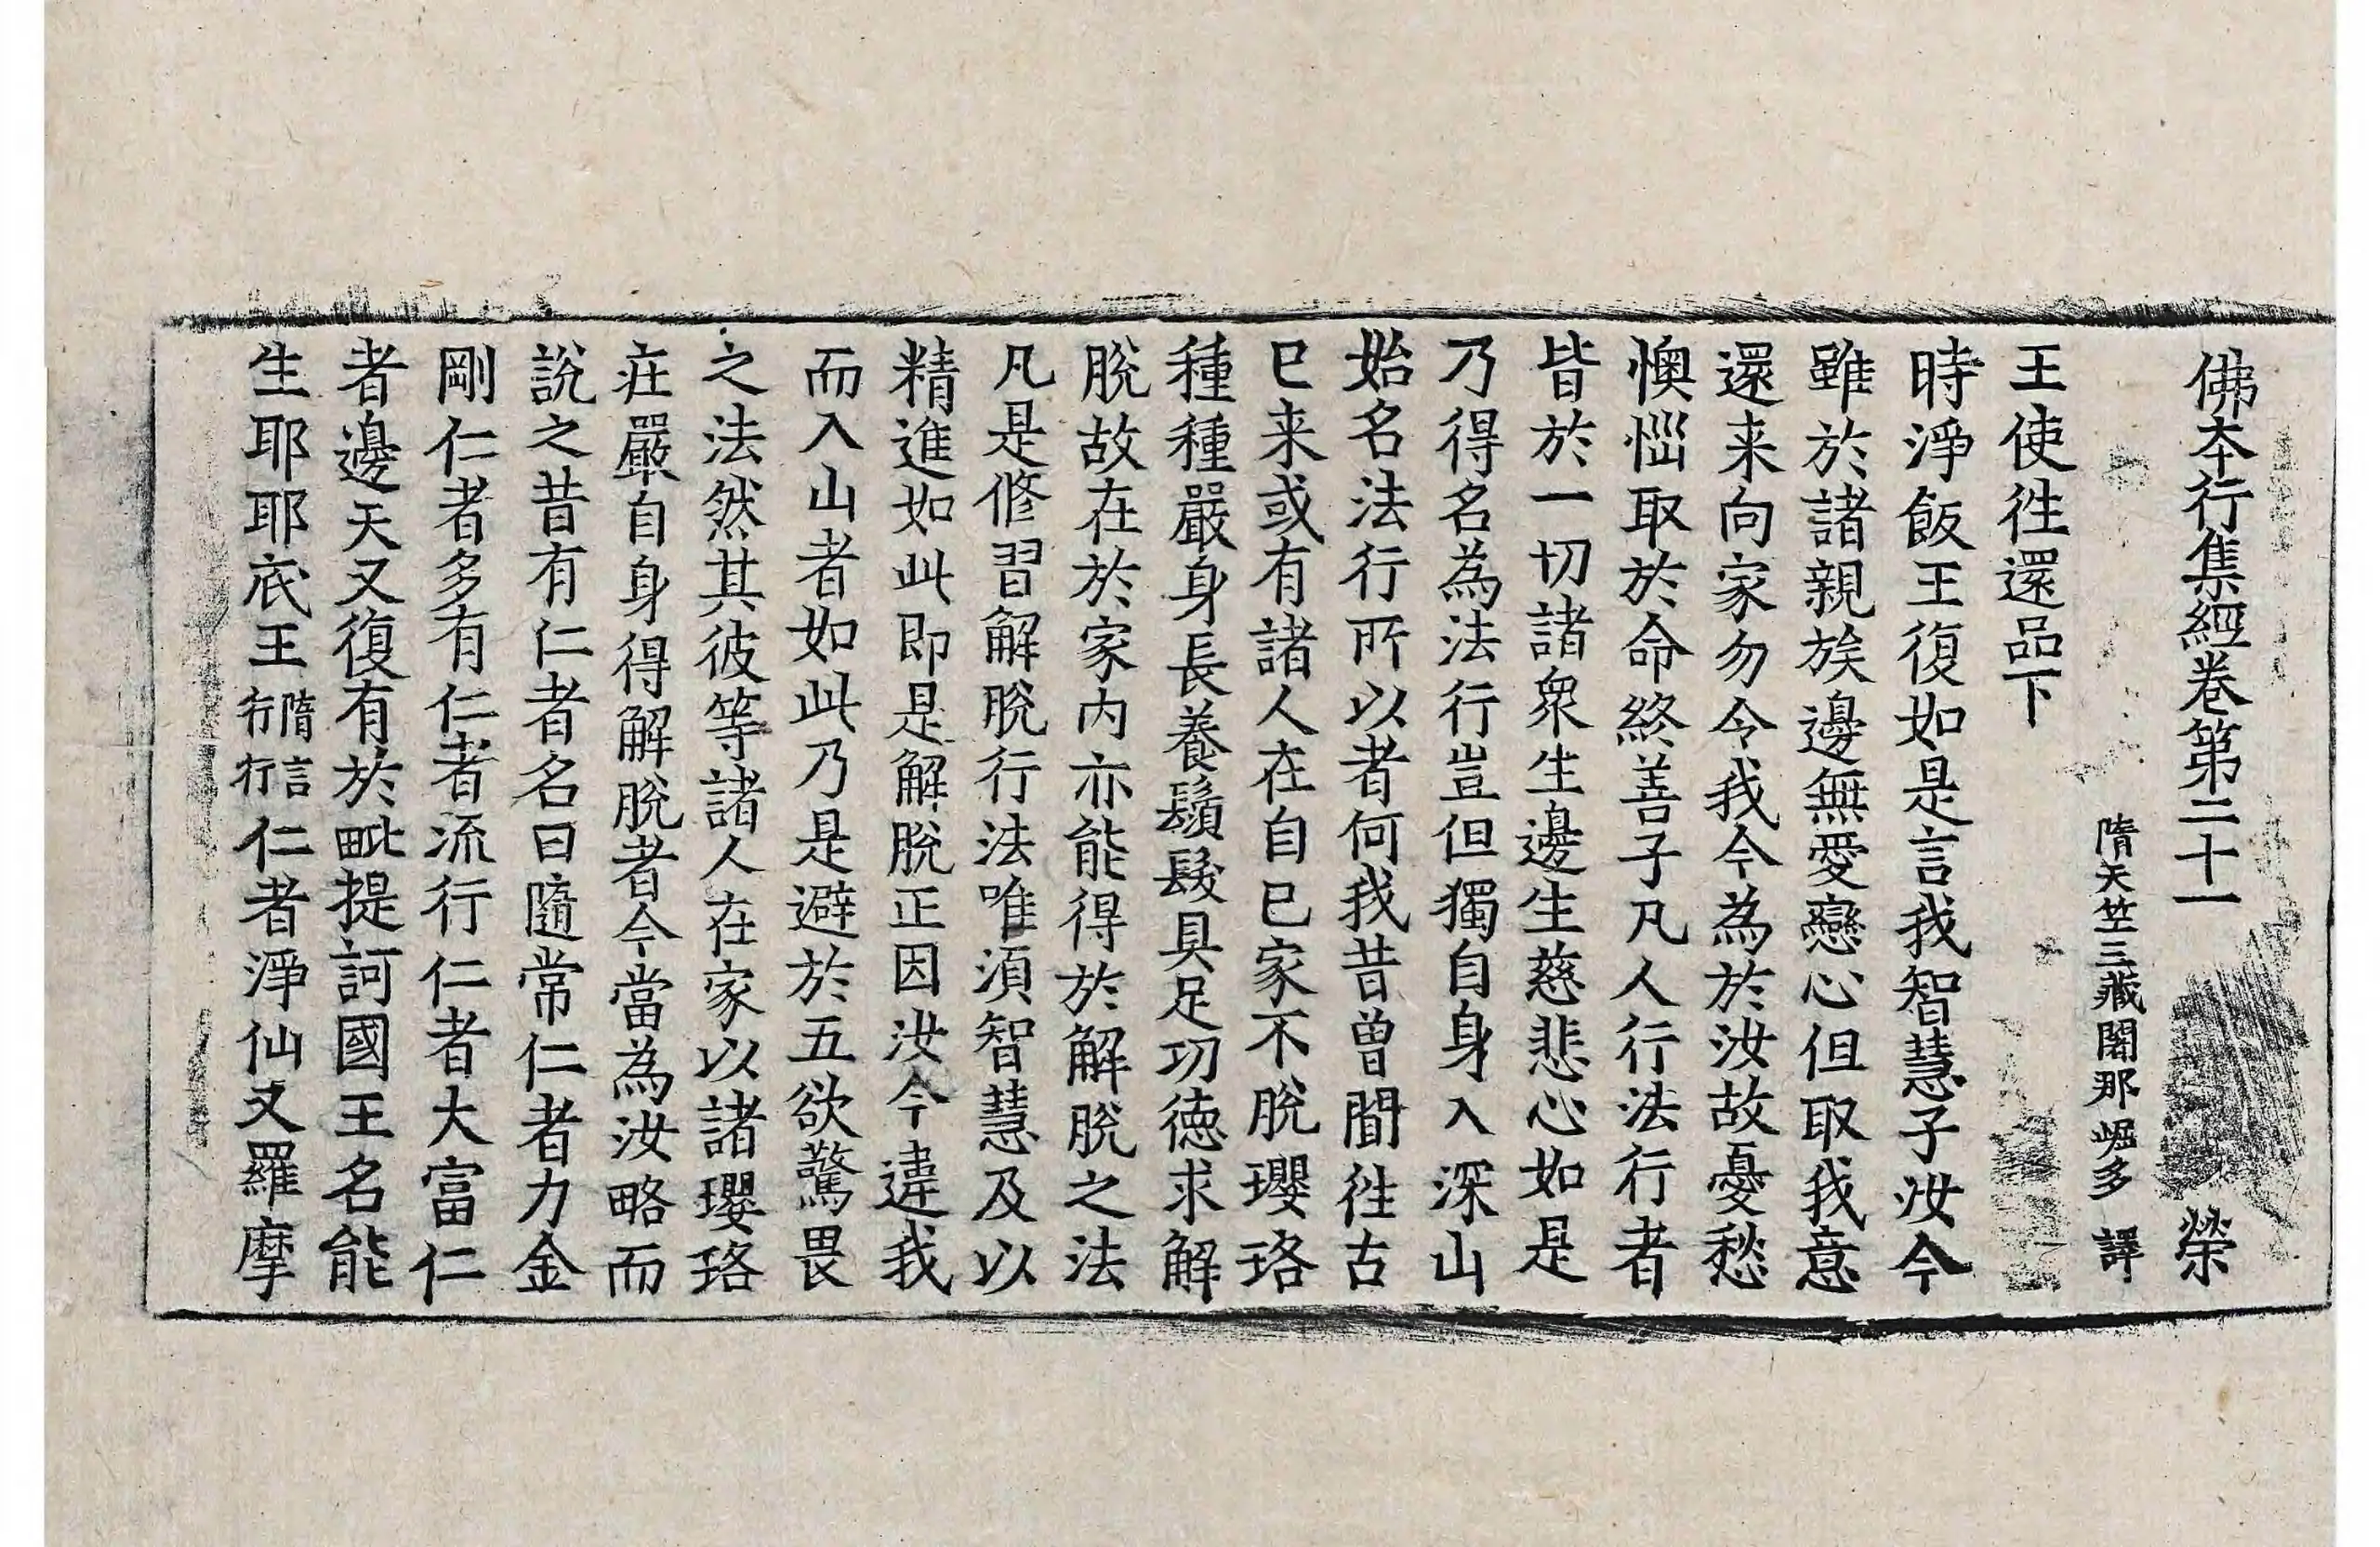 佛本行集經卷第二十一 榮
隋天竺三藏闍那崛多 譯
王使徃還品下
時淨飯王復如是言我智慧子汝今
雖於諸親族邊無愛戀心但取我意
還来向家勿令我今為於汝故憂愁
懊惱取於命終善子凡人行法行者
皆於一切諸衆生邊生慈悲心如是
乃得名為法行豈但獨自身入深山
始名法行所以者何我昔曾聞徃古
已来或有諸人在自已家不脫瓔珞
種種嚴身長養鬚髮具足功德求解
脫故在於家內亦能得於解脫之法
凡是修習解脫行法唯須智慧及以
精進如此即是解脫正因汝今違我
而入山者如此乃是避於五欲驚畏
之法然其彼等諸人在家以諸瓔珞
莊嚴自身得解脫者今當為汝略而
說之昔有仁者名曰隨常仁者力金
剛仁者多有仁者流行仁者大富仁
者邊天又復有於毗提訶國王名能
生耶耶底王隋言行行仁者淨仙叉羅摩